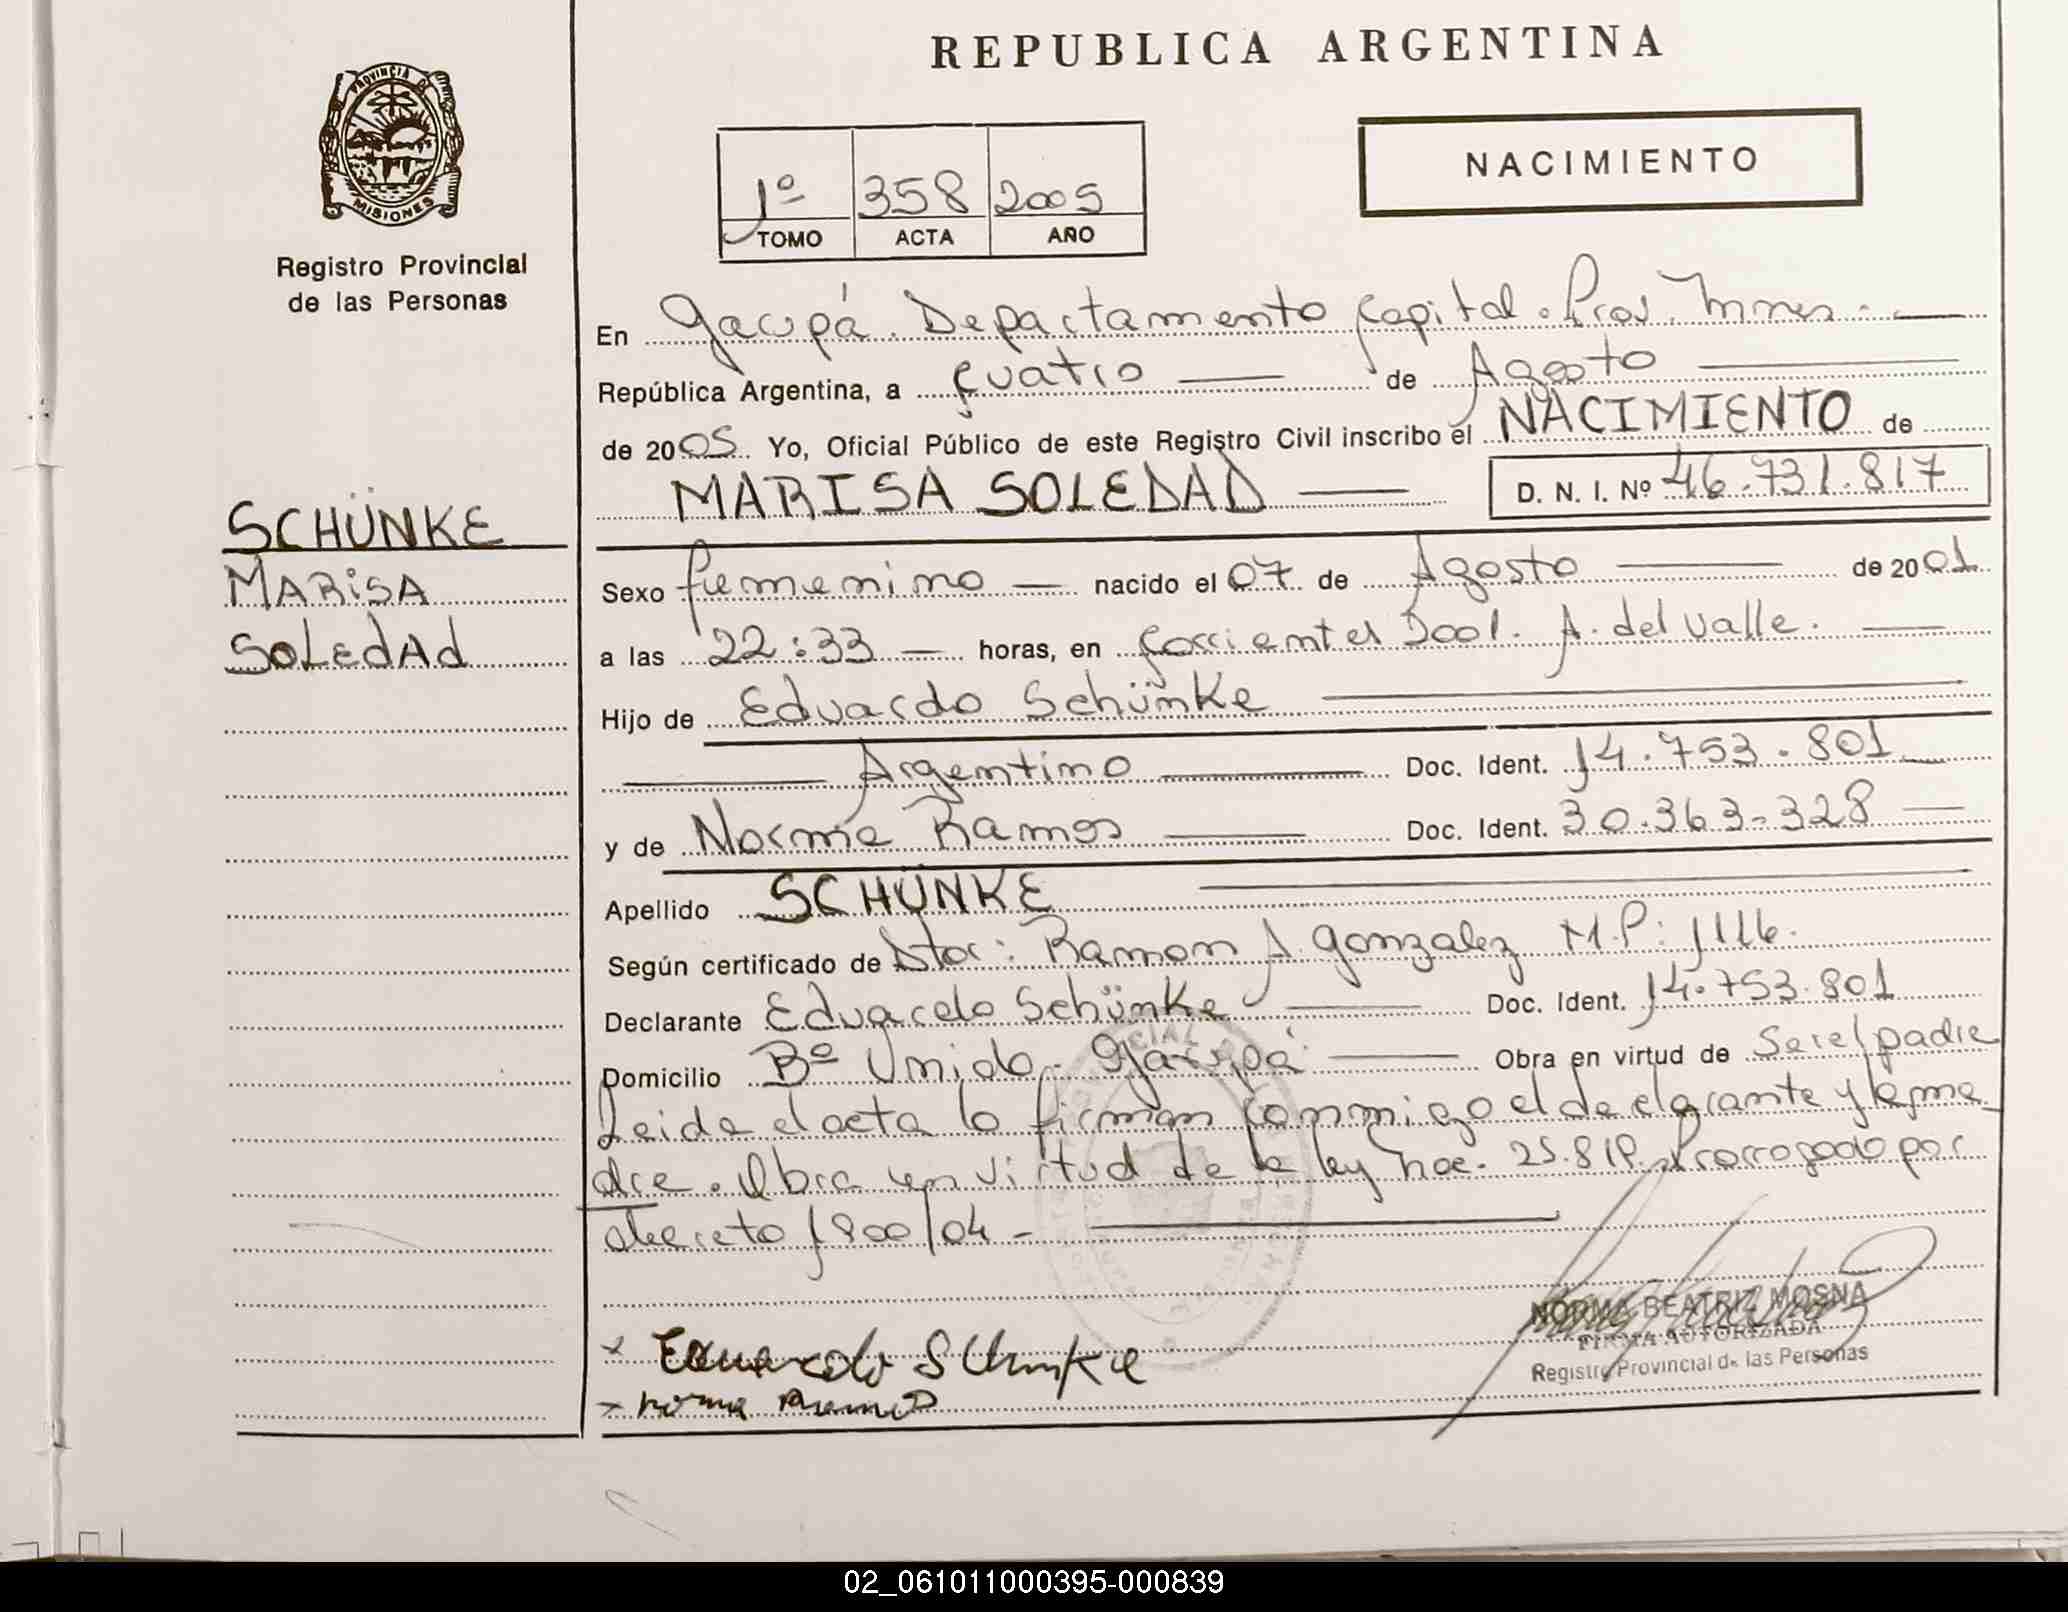 REPUBLICA ARGENTINA
PROVINCIA DE
MISIONES
Registro Provincial
de las Personas
NACIMIENTO
1º 358 2005
TOMO ACTA AÑO
En Garupá. Departamento Capital. Prov. Mnes.
República Argentina, a cuatro de Agosto
de 2005 Yo, Oficial Público de este Registro Civil inscribo el NACIMIENTO de
MARISA SOLEDAD D. N. I. Nº 46.731.817
SCHÜNKE
MARiSA
SoLEdAd
Sexo femenino nacido el 07 de Agosto de 2001
a las 22:33 horas, en Corrientes 2001. A. del Valle.
Hijo de Eduardo Schünke
Argentino Doc. Ident. 14.753.801
y de Norma Ramos Doc. Ident. 30.363.328
Apellido SCHÜNKE
Según certificado de Dtor: Ramon A Gonzalez M.P: 1116.
Declarante Eduardo Schünke Doc. Ident. 14.753.801
Domicilio Bº Unido - Garupá Obra en virtud de Ser el padre
Leida el acta lo firman conmigo el declarante y la ma
dre. Obra en virtud de la ley nac. 25.819. Prorrogado por
decreto 1800/04 -
x Eduardo Schunke
x Norma Ramos
NORMA BEATRIZ MOSNA
FIRMA AUTORIZADA
Registro Provincial de las Personas
02_061011000395-000839